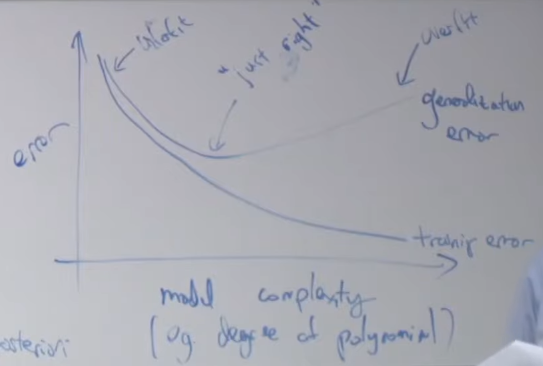 underfit
"just right"
overfit
error
generalization
error
training error
model complexity
(eg. degree of polynomial)
osteriori